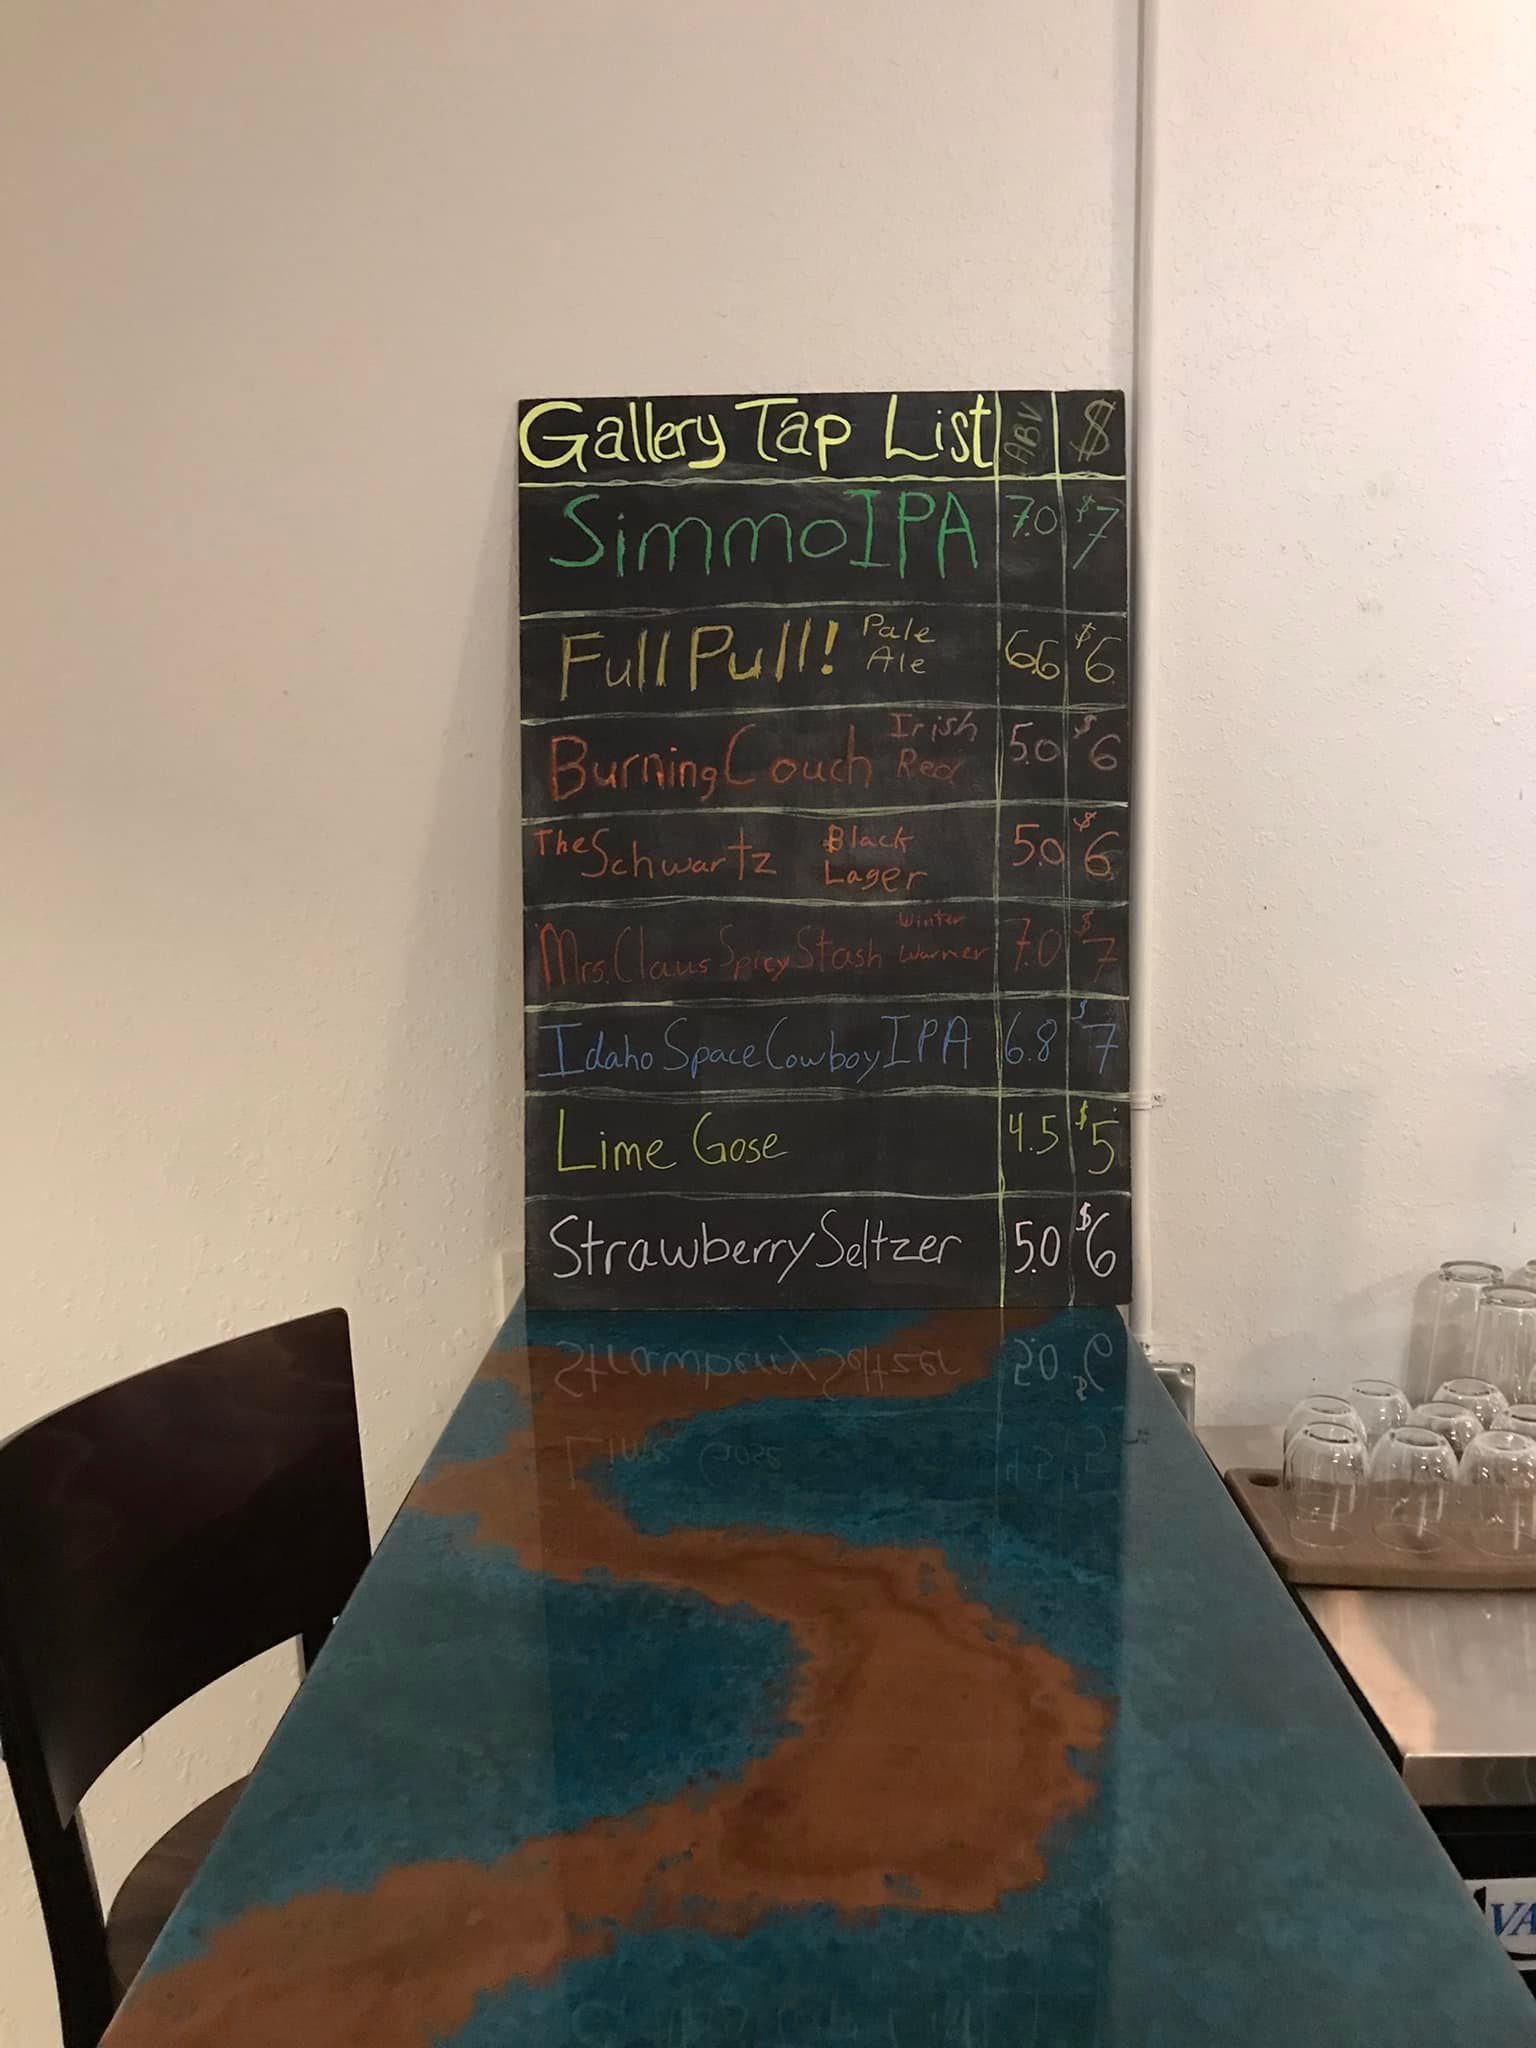 Gallery Tap List ABV $
Simmo IPA 7.0 $7
Full Pull! Pale Ale 6.6 $6
Burning Couch Irish Red 5.0 $6
The Schwartz Black Lager 5.0 $6
Mrs. Claus Spicy Stash Winter Warmer 7.0 $7
Idaho Space Cowboy IPA 6.8 $7
Lime Gose 4.5 $5
Strawberry Seltzer 5.0 $6